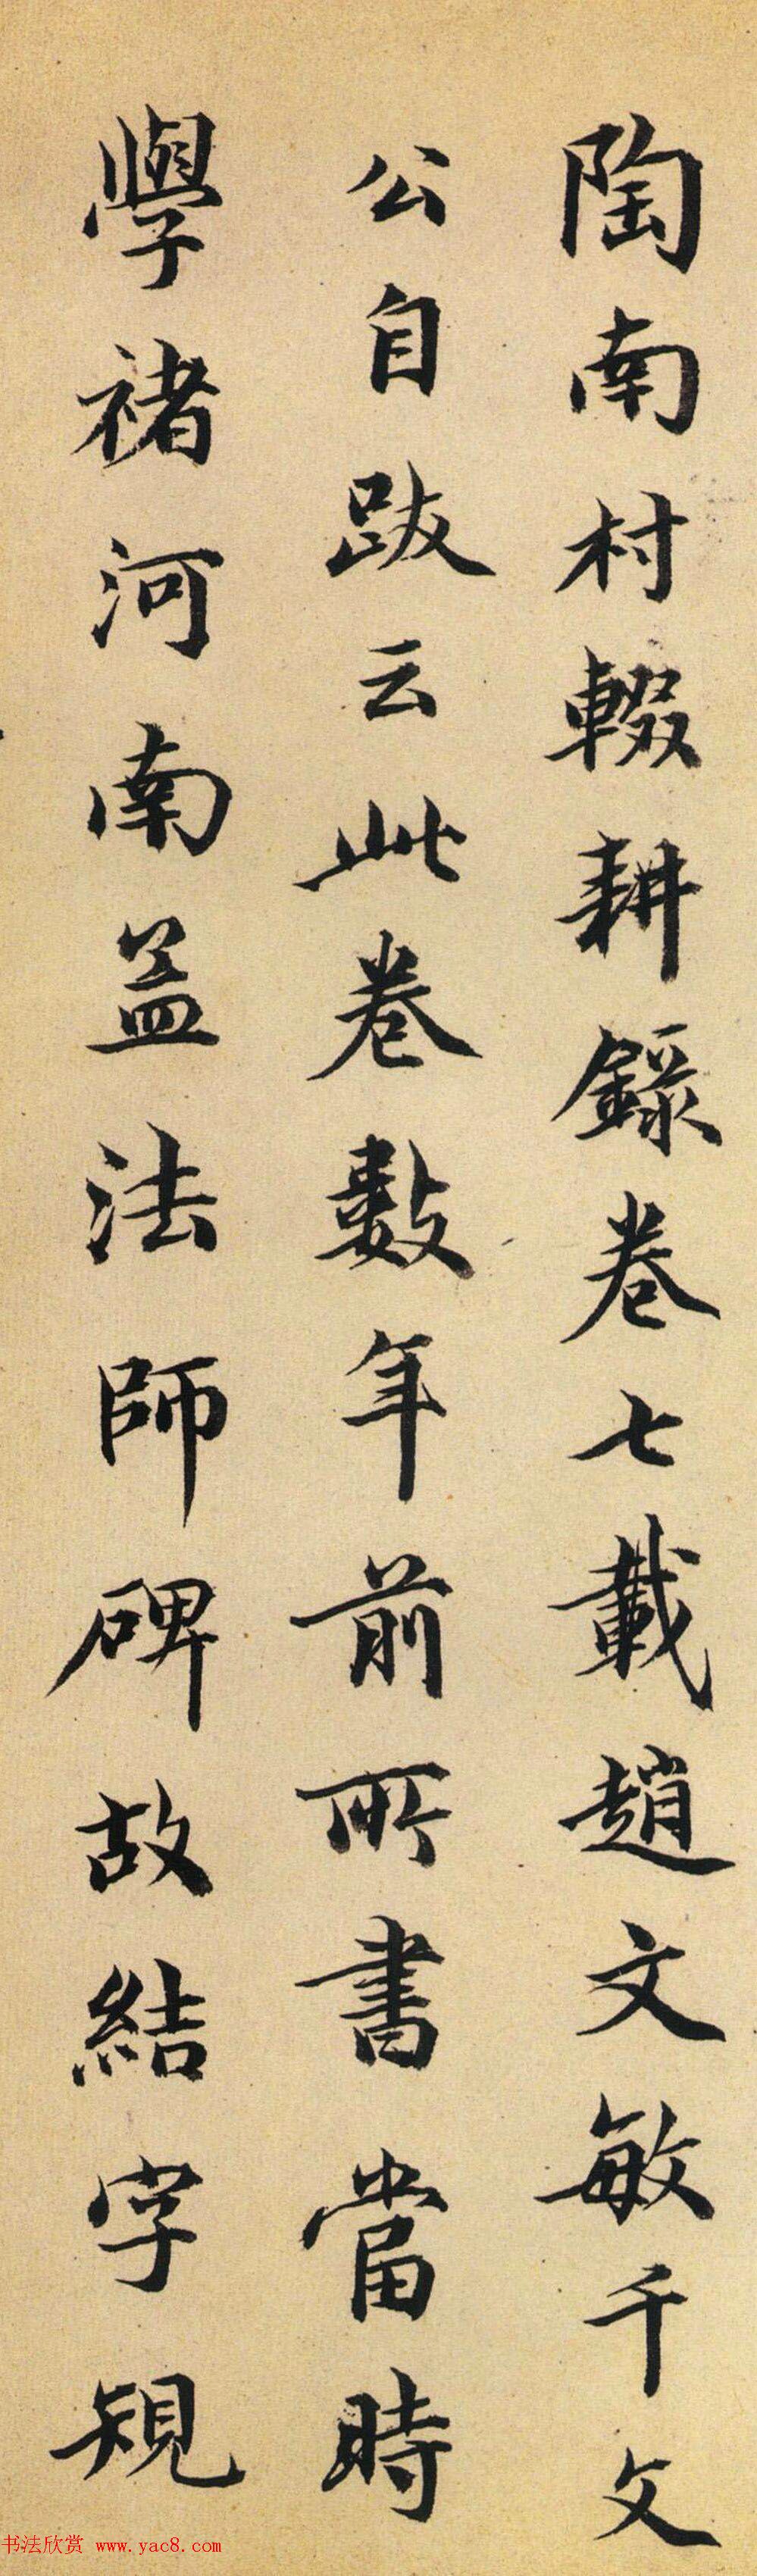 陶南村輟耕錄卷七載趙文敏千文
公自跋云此卷數年前所書當時
學褚河南盖法師碑故結字規
书法欣赏 www.yac8.com